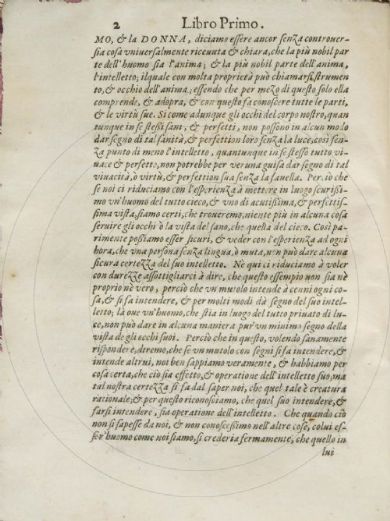 2 Libro Primo.
MO, & la DONNA, diciamo essere ancor senza controuer-
sia cosa vniuersalmente riceuuta & chiara, che la più nobil par
te dell'huomo sia l'anima; & la più nobil parte dell'anima,
l'intelletto; ilquale con molta proprietà può chiamarsi strumen
to, & occhio dell'anima; essendo che per mezo di questo solo ella
comprende, & adopra, & con questo fa conoscere tutte le parti,
& le virtù sue. Si come adunque gli occhi del corpo nostro, quan
tunque in se stessi sani, & perfetti, non possono in alcun modo
dar segno di tal sanità, & perfettion loro senza la luce, così sen-
za punto di meno l'intelletto, quantunque in se stesso tutto vi-
uace & perfetto, non potrebbe per veruna guisa dar segno di tal
viuacità, ò virtù, & perfettion sua senza la fauella. Per ciò che
se noi ci riduciamo con l'esperienza à mettere in luogo scurissi-
mo vn'huomo del tutto cieco, & vno di acutissima, & perfettis-
sima vista, siamo certi, che troueremo, niente più in alcuna cosa
seruire gli occhi ò la vista del sano, che quella del cieco. Così pa-
rimente possiamo esser sicuri, & veder con l'esperienza ad ogni
hora, che vna persona senza lingua, ò muta, non può dare alcuna
sicura certezza del suo intelletto. Ne qui ci riduciamo à voler
con durezze assottigliarci à dire, che questo essempio non sia nè
proprio nè vero, perciò che vn mutolo intende à cenni ogni co-
sa, & si fa intendere, & per molti modi dà segno del suo intel-
letto; là oue vn'huomo, che stia in luogo del tutto priuato di lu-
ce, non può dare in alcuna maniera pur vn minimo segno della
vista de gli occhi suoi. Perciò che in questo, volendo sanamente
rispondere, diremo, che se vn mutolo con segni si fa intendere, &
intende altrui, noi ben sappiamo veramente, & habbiamo per
cosa certa, che ciò sia effetto, & operatione dell'intelletto suo, ma
tal nostra certezza si fa dal saper noi, che quel tale è creatura
rationale; & per questo riconosciamo, che quel suo intendere, &
farsi intendere, sia operatione dell'intelletto. Che quando ciò
non si sapesse da noi, & non conoscessimo nell'altre cose, colui es-
ser huomo come noi siamo, si crederia fermamente, che quello in
lui